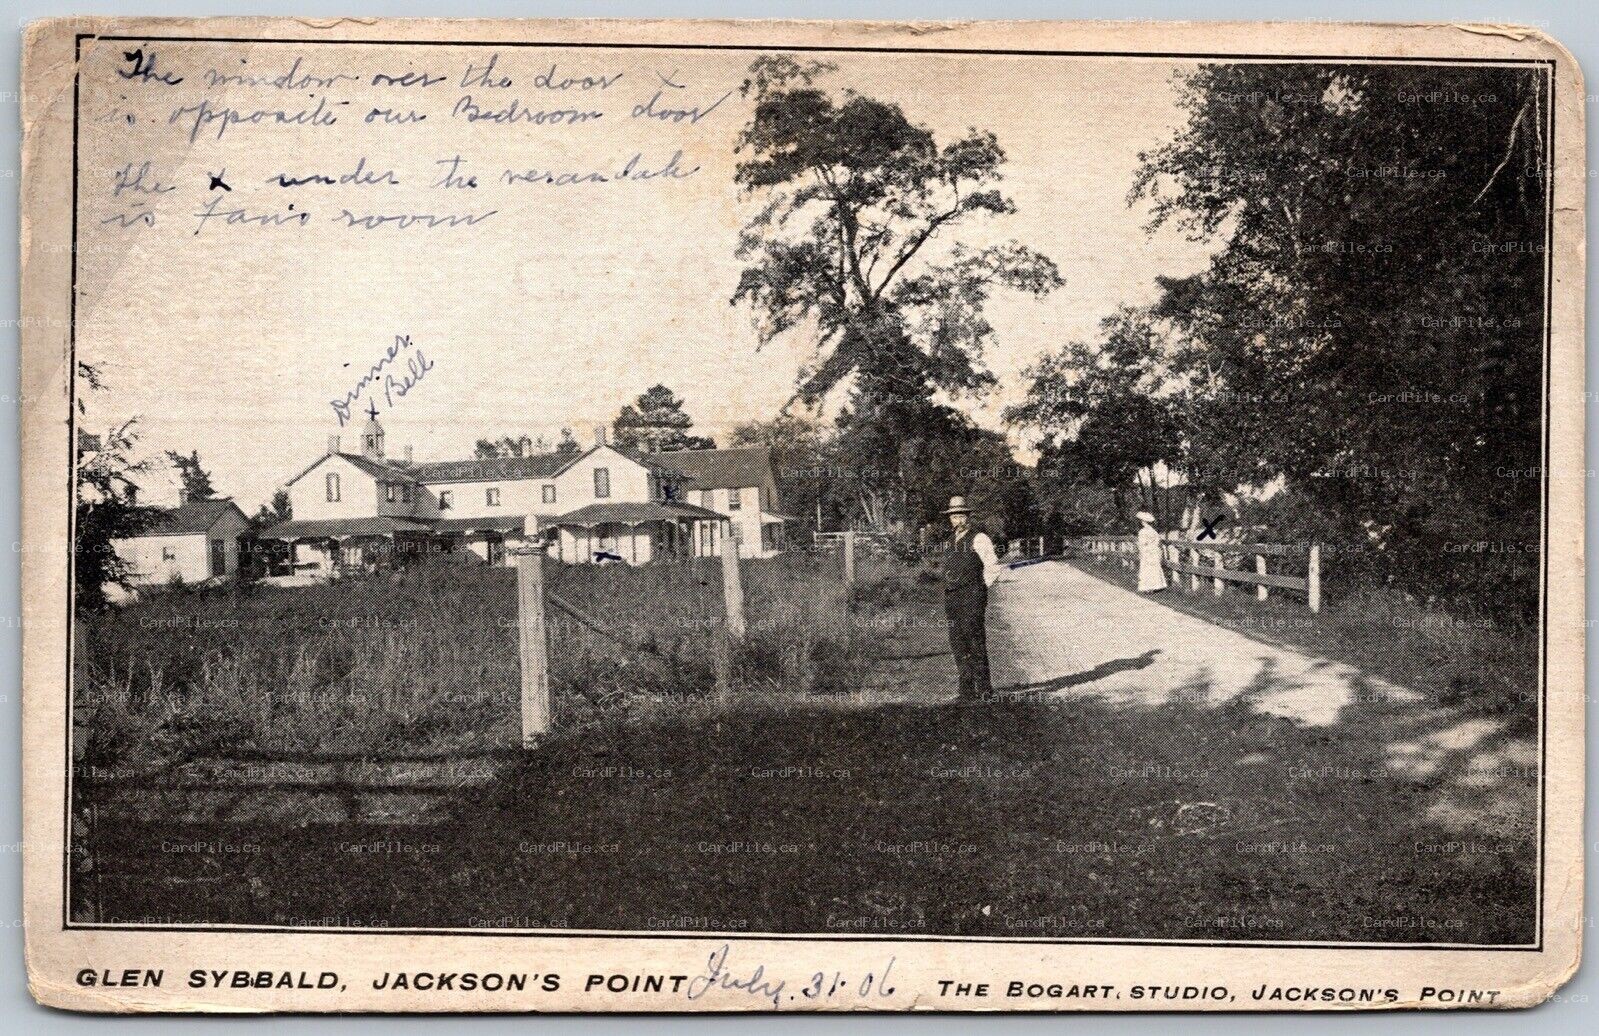 The window over the door x
is opposite our Bedroom door
The x under the verandah
is room
Dinner
x Bell
x
GLEN SYBBALD, JACKSON'S POINT July. 31. 06 THE BOGART. STUDIO, JACKSON'S POINT
CardPile.ca